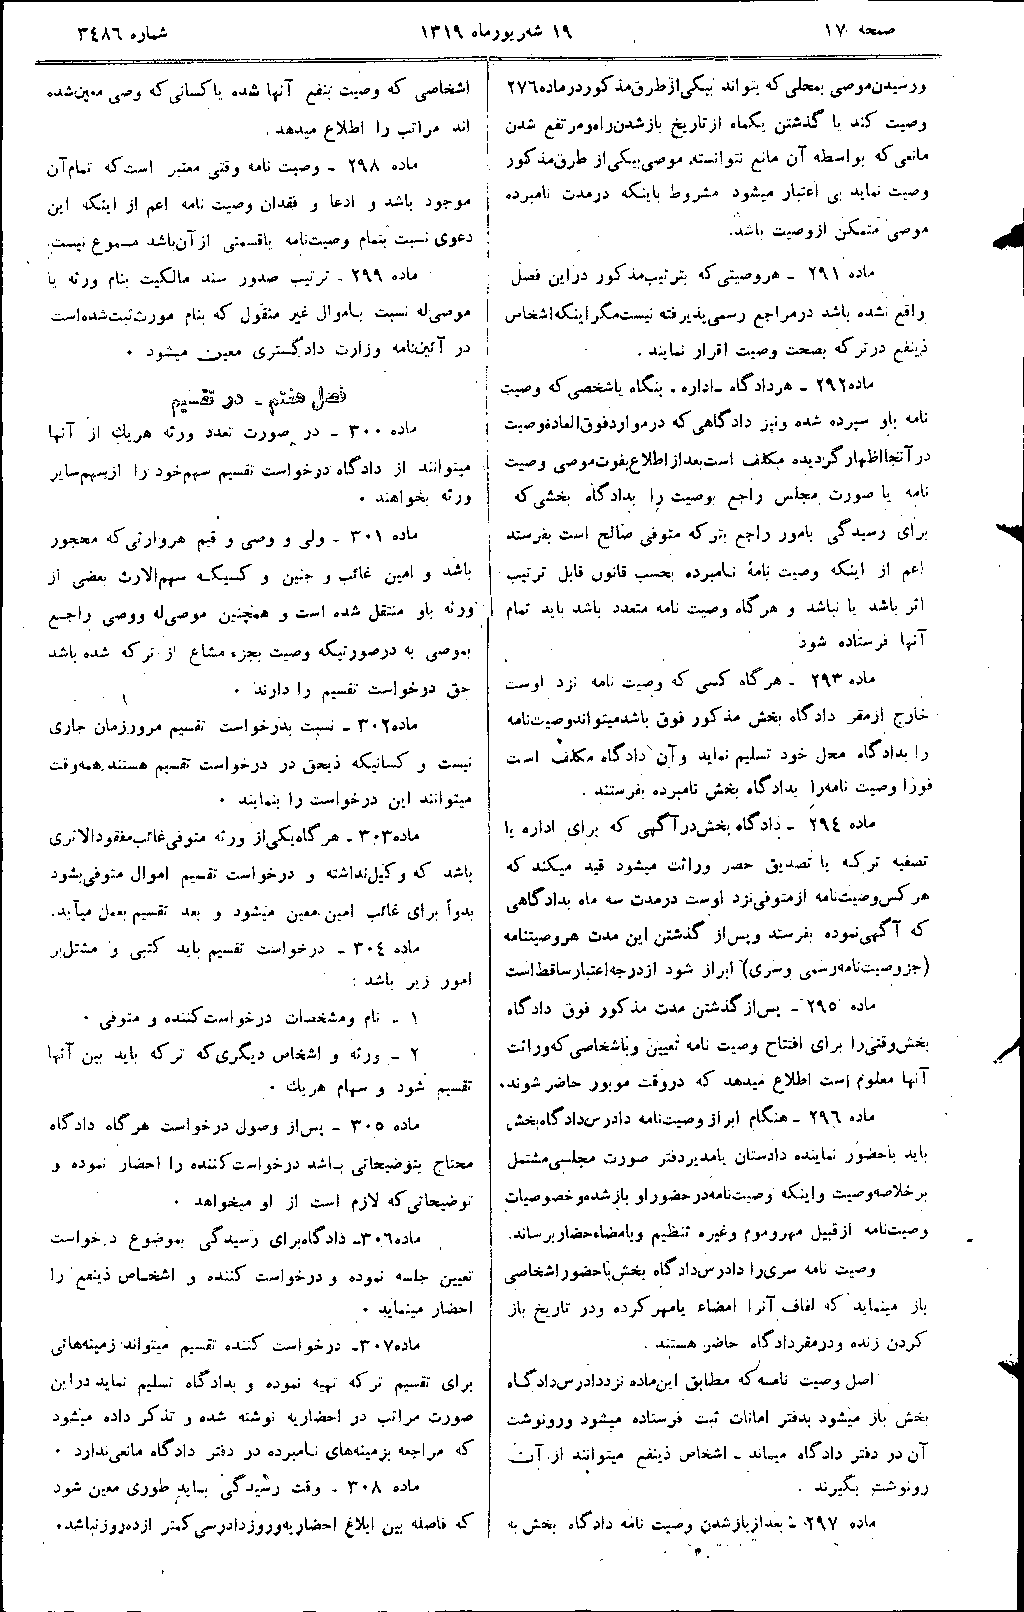 صفحه ۱۷
۱۹ شهریورماه ۱۳۱۹
شماره ۳۴۸۶
ورسیدن موصی بمحلی که بتواند بیکی از طرق مذکور در ماده ۲۷۶
وصیت کند یا گذشتن یکماه از تاریخ باز شدن راه و مرتفع شدن
مانعی که بواسطه آن مانع نتوانسته موصی بیکی از طرق مذکور
وصیت نماید بی اعتبار میشود مشروط باینکه در مدت نامبرده
موصی متمکن از وصیت باشد.
ماده ۲۹۱ - هر وصیتی که بترتیب مذکور در این فصل
واقع نشده باشد در مراجع رسمی پذیرفته نیست مگر اینکه اشخاص
ذینفع در ترکه بصحت وصیت اقرار نمایند .
ماده ۲۹۲ - هر دادگاه - اداره - بنگاه یا شخصی که وصیت
نامه باو سپرده شده و نیز دادگاهی که در موارد فوق العاده وصیت
در آنجا اظهار گردیده مکلف است بعد از اطلاع بفوت موصی وصیت
نامه یا صورت مجلس راجع بوصیت را بدادگاه بخشی که
برای رسیدگی بامور راجع بترکه متوفی صالح است بفرستد
اعم از اینکه وصیت نامهٔ نامبرده بحسب قانون قابل ترتیب
اثر باشد یا نباشد و هر گاه وصیت نامه متعدد باشد باید تمام
آنها فرستاده شود
ماده ۲۹۳ - هر گاه کسی که وصیت نامه نزد اوست
خارج از مقر دادگاه بخش مذکور فوق باشد میتواند وصیت نامه
را بدادگاه محل خود تسلیم نماید و آن دادگاه مکلف است
فوراً وصیت نامه را بدادگاه بخش نامبرده بفرستد .
ماده ۲۹۴ - دادگاه بخش در آگهی که برای اداره یا
تصفیه ترکه یا تصدیق حصر وراثت میشود قید میکند که
هر کس وصیت نامه از متوفی نزد اوست در مدت سه ماه بدادگاهی
که آگهی نموده بفرستد و پس از گذشتن این مدت هر وصیتنامه
(جز وصیت نامه رسمی و سری) ابراز شود از درجه اعتبار ساقط است
ماده ۲۹۵ - پس از گذشتن مدت مذکور فوق دادگاه
بخش وقتی را برای افتتاح وصیت نامه تعیین و باشخاصی که وراثت
آنها معلوم است اطلاع میدهد که در وقت مزبور حاضر شوند.
ماده ۲۹۶ - هنگام ابراز وصیت نامه دادرس دادگاه بخش
باید با حضور نماینده دادستان یا مدیر دفتر صورت مجلسی مشتمل
بر خلاصه وصیت و اینکه وصیت نامه در حضور او باز شده و خصوصیات
وصیت نامه از قبیل مهر و موم و غیره تنظیم و بامضاء حضار برساند.
وصیت نامه سری را دادرس دادگاه بخش با حضور اشخاصی
باز مینماید که لفاف آنرا امضاء یا مهر کرده و در تاریخ باز
کردن زنده و در مقر دادگاه حاضر هستند .
اصل وصیت نامه که مطابق این ماده نزد دادرس دادگاه
بخش باز میشود بدفتر امانات ثبت فرستاده میشود و رونوشت
آن در دفتر دادگاه میماند - اشخاص ذینفع میتوانند از آن
رونوشت بگیرند .
ماده ۲۹۷ - بعد از باز شدن وصیت نامه دادگاه بخش به
اشخاصی که وصیت بنفع آنها شده یا کسانی که وصی معین شده
اند مراتب را اطلاع میدهد .
ماده ۲۹۸ - وصیت نامه وقتی معتبر است که تمام آن
موجود باشد و ادعا و فقدان وصیت نامه اعم از اینکه این
دعوی نسبت بتمام وصیت نامه یا قسمتی از آن باشد مسموع نیست.
ماده ۲۹۹ - ترتیب صدور سند مالکیت بنام ورثه یا
موصی له نسبت باموال غیر منقول که بنام مورث ثبت شده است
در آئین نامه وزارت دادگستری معین میشود .
فصل هفتم - در تقسیم
ماده ۳۰۰ - در صورت تعدد ورثه هریک از آنها
میتوانند از دادگاه درخواست تقسیم سهم خود را از سهم سایر
ورثه بخواهند .
ماده ۳۰۱ - ولی و وصی و قیم هر وارثی که محجور
باشد و امین غائب و جنین و کسیکه سهم الارث بعضی از
ورثه باو منتقل شده است و همچنین موصی له و وصی راجع
بموصی به در صورتیکه وصیت بجزء مشاع از ترکه شده باشد
حق درخواست تقسیم را دارند .
ماده ۳۰۲ - نسبت بدرخواست تقسیم مرور زمان جاری
نیست و کسانیکه ذیحق در درخواست تقسیم هستند همه وقت
میتوانند این درخواست را بنمایند .
ماده ۳۰۳ - هر گاه یکی از ورثه متوفی غائب مفقود الاثری
باشد که وکیل نداشته و درخواست تقسیم اموال متوفی بشود
بدواً برای غائب امین معین میشود و بعد تقسیم بعمل میآید.
ماده ۳۰۴ - درخواست تقسیم باید کتبی و مشتمل بر
امور زیر باشد :
۱ - نام و مشخصات درخواست کننده و متوفی .
۲ - ورثه و اشخاص دیگری که ترکه باید بین آنها
تقسیم شود و سهام هریک .
ماده ۳۰۵ - پس از وصول درخواست هر گاه دادگاه
محتاج بتوضیحاتی باشد درخواست کننده را احضار نموده و
توضیحاتی که لازم است از او میخواهد .
ماده ۳۰۶ - دادگاه برای رسیدگی بموضوع درخواست
تعیین جلسه نموده و درخواست کننده و اشخاص ذینفع را
احضار مینماید .
ماده ۳۰۷ - درخواست کننده تقسیم میتواند زمینه هائی
برای تقسیم ترکه تهیه نموده و بدادگاه تسلیم نماید در این
صورت مراتب در احضاریه نوشته شده و تذکر داده میشود
که مراجعه بزمینه های نامبرده در دفتر دادگاه مانعی ندارد .
ماده ۳۰۸ - وقت رسیدگی باید طوری معین شود
که فاصله بین ابلاغ احضاریه و روز دادرسی کمتر از ده روز نباشد.